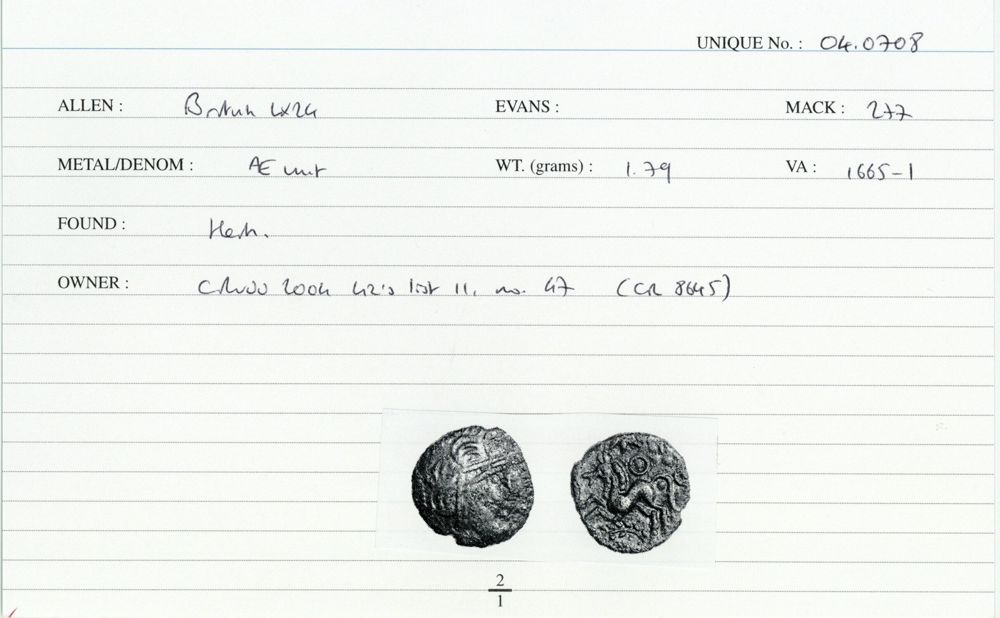 UNIQUE No. : 04.0708
ALLEN : British LX24 EVANS : MACK : 277
METAL/DENOM : Æ unit WT. (grams) : 1.79 VA : 1665-1
FOUND : Herts.
OWNER : 2004 list 11, no. 47 (CR 8645)
2
1